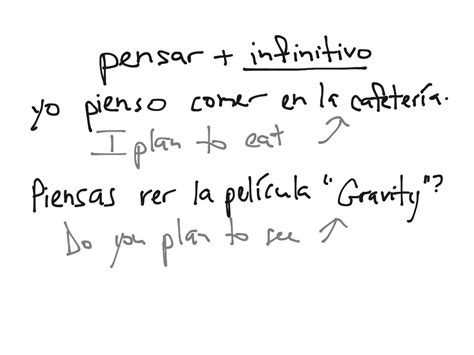 pensar + infinitivo
yo pienso comer en la cafetería.
I plan to eat
Piensas ver la película "Gravity"?
Do you plan to see